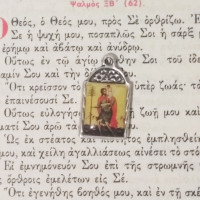 Ψαλμὸς ΞΒ΄ (62)
Θεός, ὁ Θεός μου, πρὸς Σὲ ὀρθρίζω. Ἐ
Σε ἡ ψυχή μου, ποσαπλῶς Σοι ἡ σάρξ μ
ἐρήμῳ καὶ ἀβάτῳ καὶ ἀνύδρῳ.
Οὕτως ἐν τῷ ἁγίῳ ὤφθην Σοι τοῦ ἰδ
Σου καὶ τὴν δόξαν Σου.
Ὅτι κρεῖσσον τὸ ὑπὲρ ζωάς· τὰ
ἐπαινέσουσί Σε.
Οὕτως εὐλογή ζωῇ μου καὶ
ματί Σου ἀρῶ τὰς χ
Ὡς ἐκ στέατος καὶ πιότητος ἐμπλησθείη
μου, καὶ χείλη ἀγαλλιάσεως αἰνέσει τὸ στό
Εἰ ἐμνημόνευόν Σου ἐπὶ τῆς στρωμνῆς
ὄρθροις ἐμελέτων εἰς Σέ.
Ὅτι ἐγενήθης βοηθός μου, καὶ ἐν τῇ σκέπ